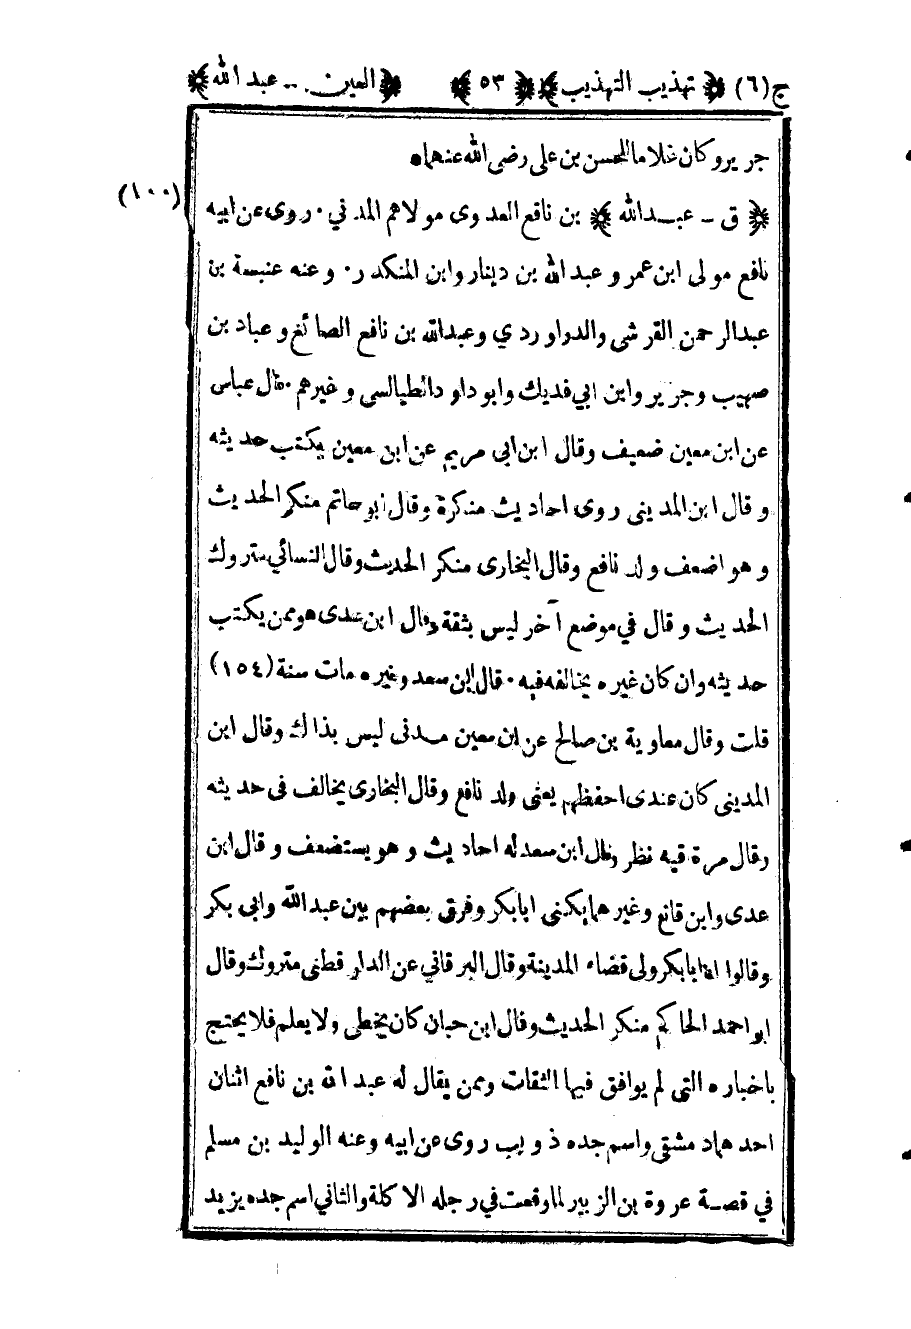 ج(٦) ﴿ تهذيب التهذيب ﴾ ﴿ ٥٣ ﴾ ﴿ العين -- عبدالله ﴾
جرير وكان غلاما للحسن بن على رضى الله عنهما ه
(١٠٠)
﴿ ق - عبدالله ﴾ بن نافع العدوى مولاهم المدني ٠ روى عن ابيه
نافع مولى ابن عمر و عبد الله بن دينار وابن المنكدر ٠ وعنه عنبسة بن
عبدالرحمن القرشى والدراوردي وعبدالله بن نافع الصائغ و عباد بن
صهيب وجرير وابن ابي فديك وابو داود الطيالسى و غيرهم ٠ قال عباس
عن ابن معين ضعيف وقال ابن ابى مريم عن ابن معين يكتب حديثه
و قال ابن المدينى روى احاديث منكرة وقال ابو حاتم منكر الحديث
و هو اضعف ولد نافع وقال البخارى منكر الحديث وقال النسائي متروك
الحديث و قال في موضع آخر ليس بثقة وقال ابن عدى هو ممن يكتب
حديثه وان كان غيره يخالفه فيه ٠ قال ابن سعد وغيره مات سنة (١٥٤)
قلت وقال معاوية بن صالح عن ابن معين مدنى ليس بذاك وقال ابن
المدينى كان عندى احفظهم يعنى ولد نافع وقال البخارى يخالف فى حديثه
وقال مرة فيه نظر وقال ابن سعد له احاديث و هو يستضعف و قال ابن
عدى وابن قانع وغيرهما يكنى ابابكر وفرق بعضهم بين عبدالله وابى بكر
وقالوا ان ابابكر ولى قضاء المدينة وقال البرقاني عن الدارقطنى متروك وقال
ابو احمد الحاكم منكر الحديث وقال ابن حبان كان يخطى ولا يعلم فلا يحتج
باخباره التى لم يوافق فيها الثقات وممن يقال له عبد الله بن نافع اثنان
احدهما دمشقى واسم جده ذويب روى عن ابيه وعنه الوليد بن مسلم
في قصة عروة بن الزبير لما وقعت في رجله الاكلة والثاني اسم جده يزيد